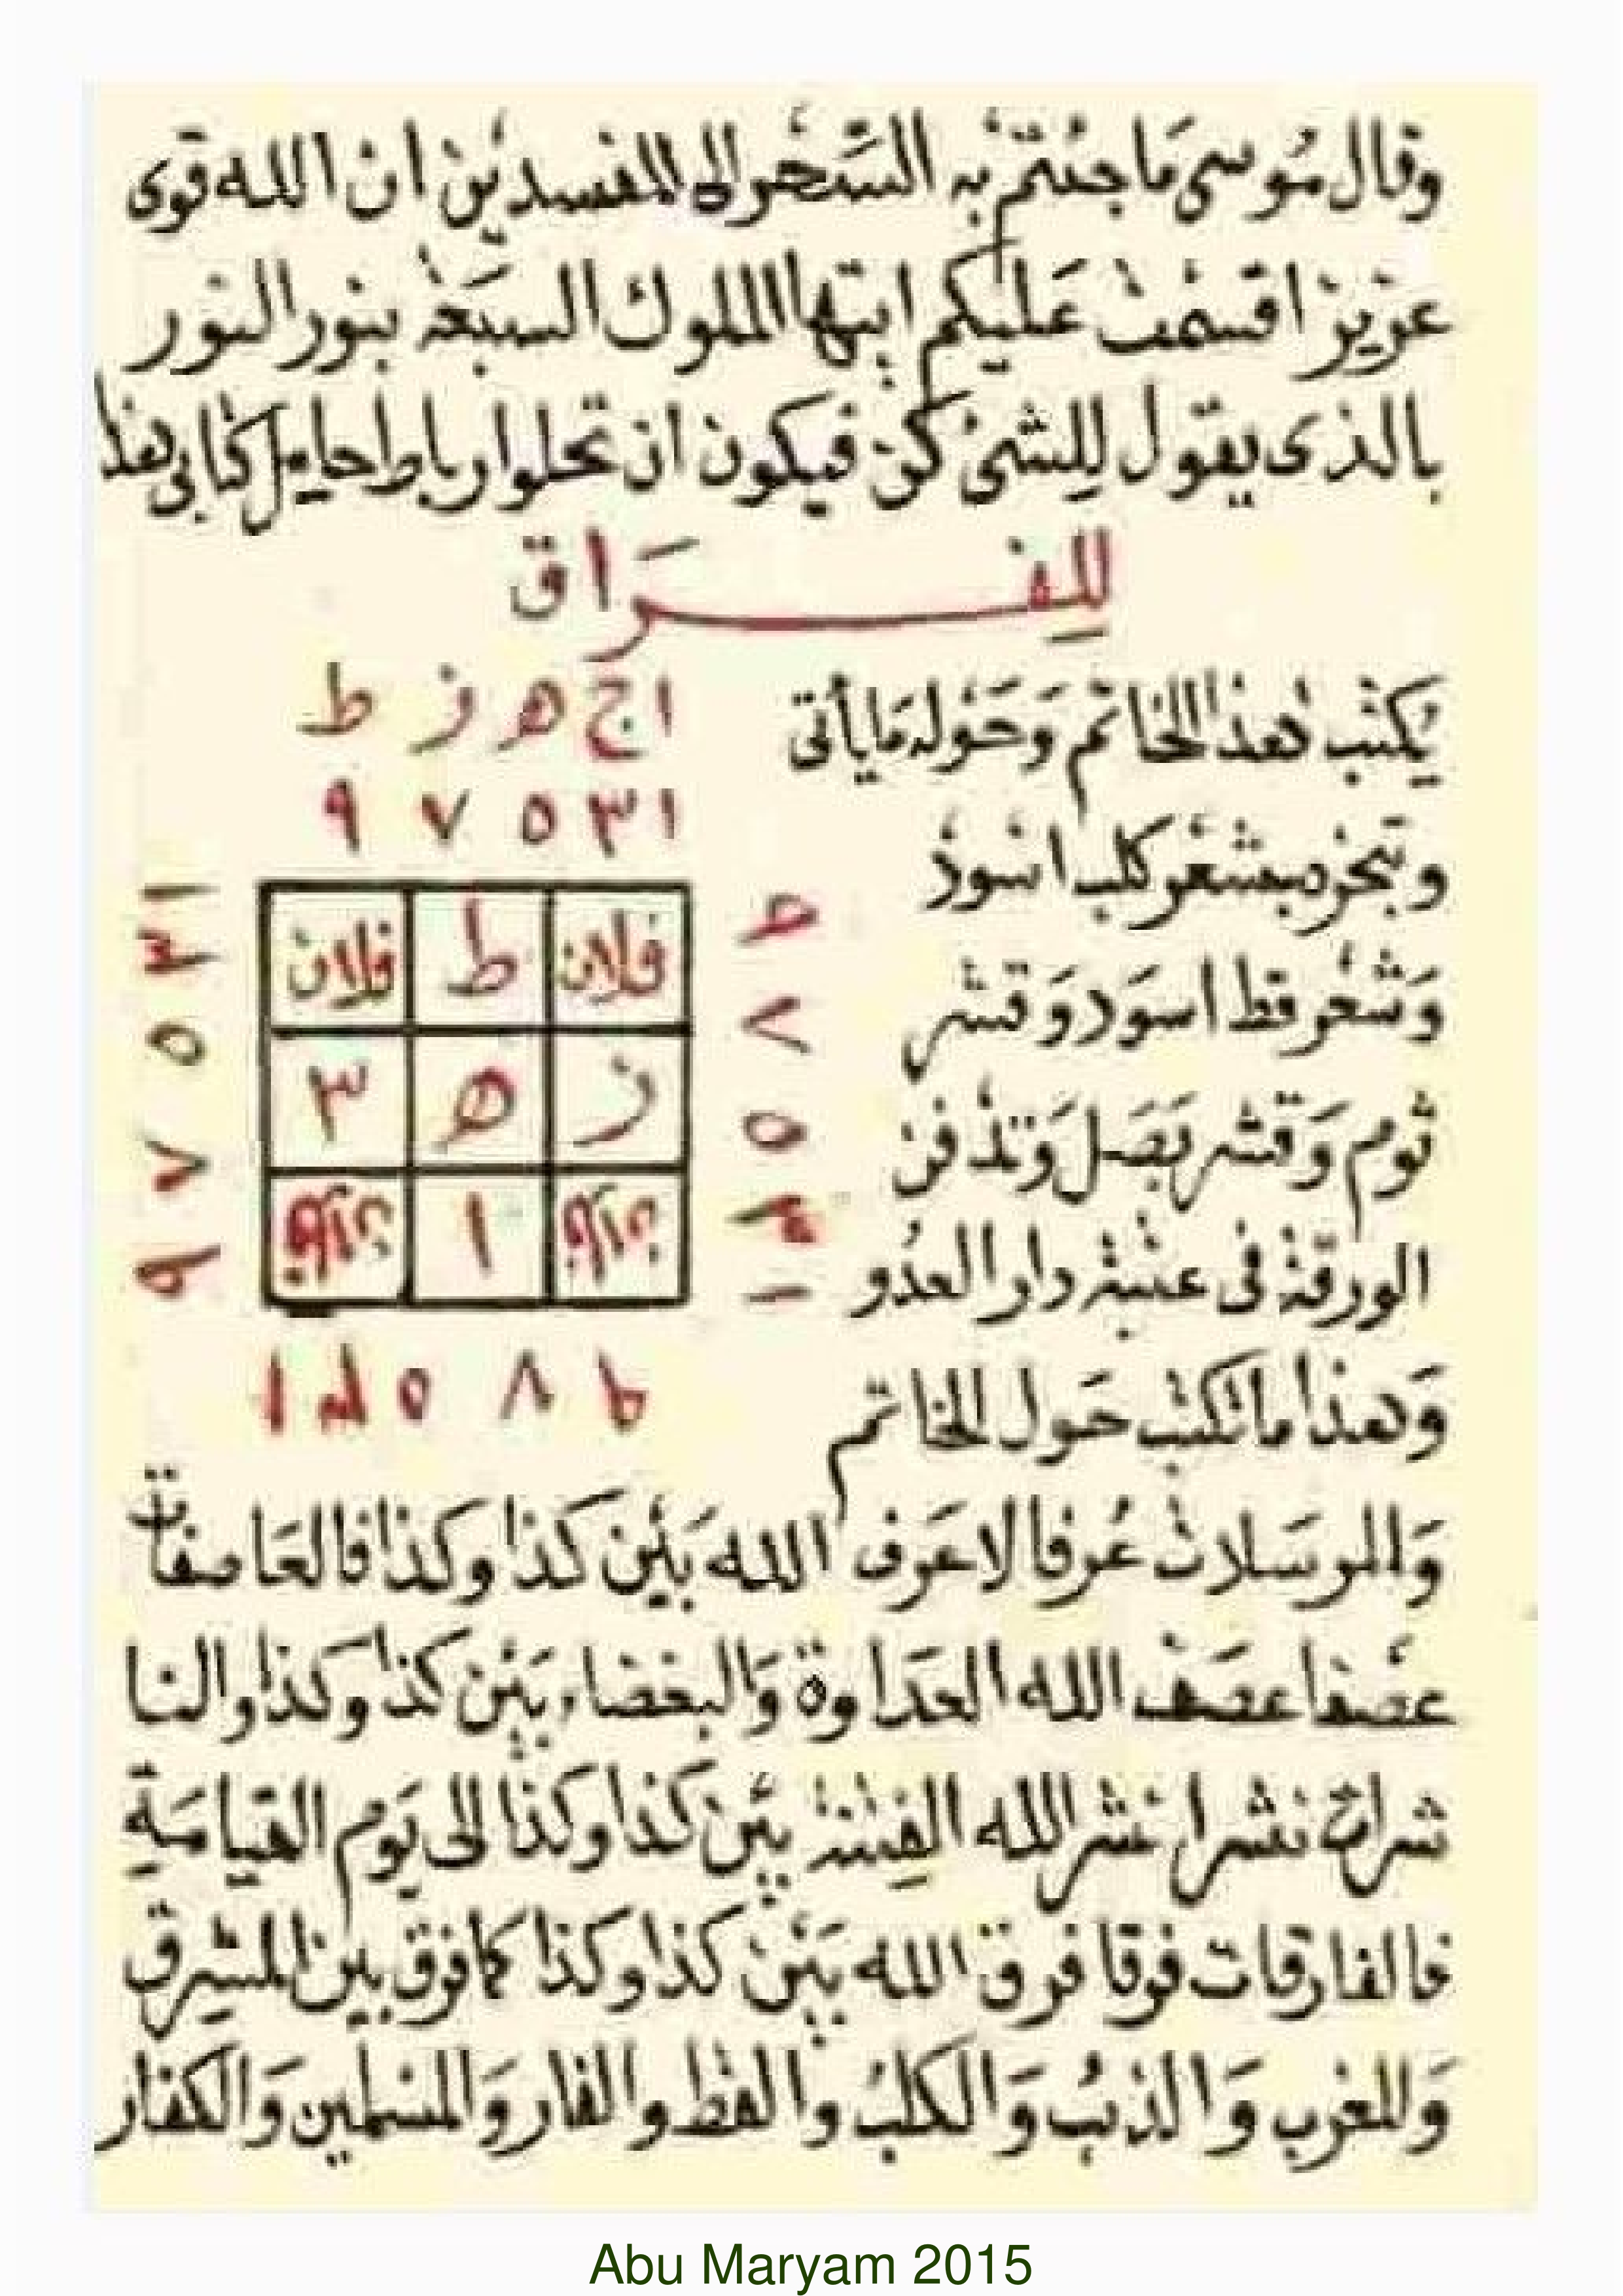 وقال مُوسى مَا جئتم به السّحر الى المفسدين ان الله قوى
عزيز اقسمت عَليكم ايتها الملوك السبعَة بنور النور
بالذى يقول لِلشئ كن فيكون ان تحلوا رباط حامل كتابى هذا
لِلفــراق
يُكتب هذا الخاتم وَحَوله مَا يأتى
ا ج ه ز ط
١ ٣ ٥ ٧ ٩
وتبخره بشعر كلب اسود
وَشعر قط اسوَد وَقشر
ثوم وَقشر بَصَل وَتدفن
الورقة فى عتبة دار العدُو
وَهذا ما تكتب حَول الخاتم
فلان ط فلان
ز ه ٣
ا
وَالمرسَلات عُرفا لا عَرف الله بَيْن كذا وكذا فالعَاصفات
عصفا عصَف الله العدَاوة وَالبغضاء بَيْن كذا وكذا والنا
شرات نشرا نشر الله الفِتنة بيْن كذا وكذا الى يَوم القيامَة
فالفارقات فرقا فرق الله بَيْن كذا وكذا كما فرق بين المشرق
وَالمغرب وَالذئب وَالكلب والقط والفار وَالمسلمين وَالكفار
Abu Maryam 2015